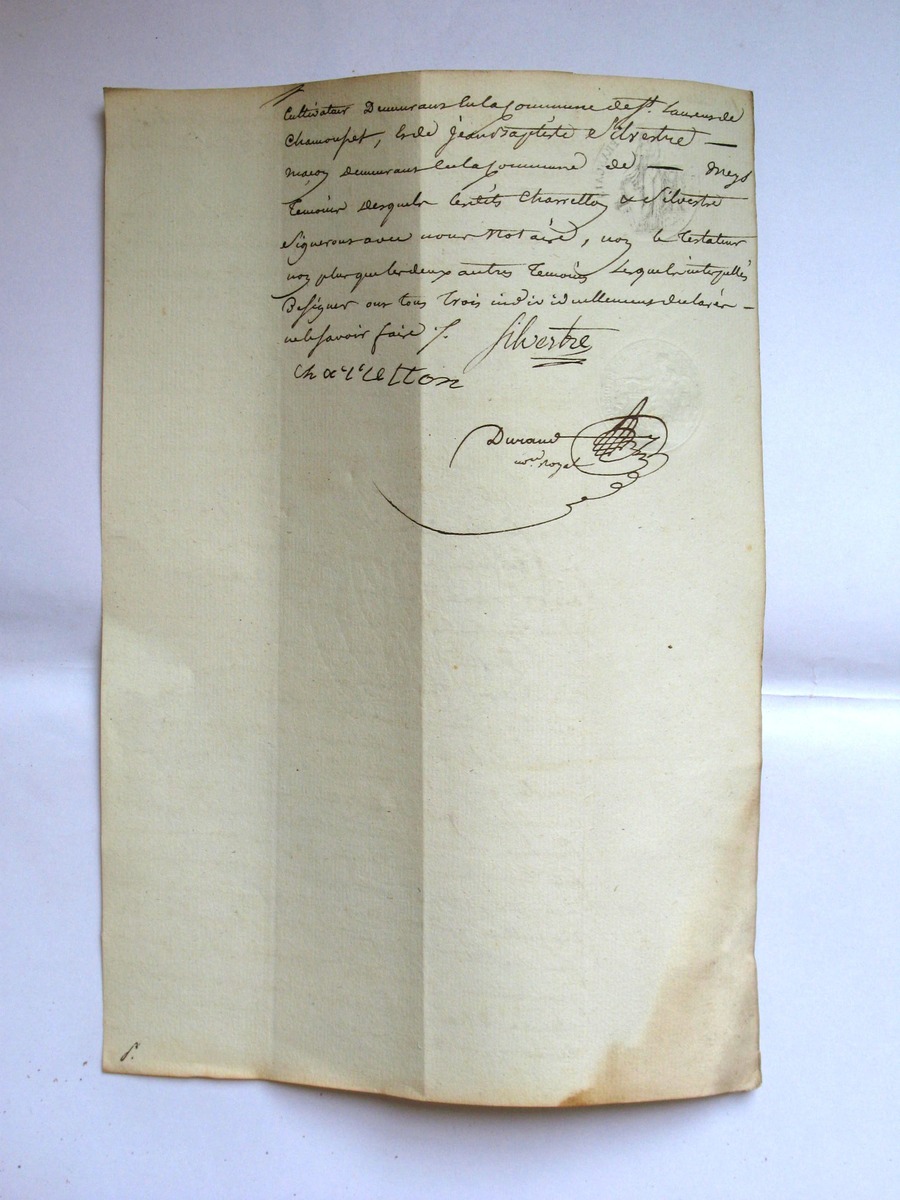 Cultivateur Demeurant En la Commune de St. Laurens de
Chamouset, Et de Jéan Baptiste Silvestre —
maçon demeurant En la Commune de — meys
temoins desquels lesdits Charretton & Silvestre
Signerons avec nous Notaire, non le testateur
non plus que les deux autres temoins Lesquels interpellés
De Signer ont tous trois individuellement declarér —
ne le Savoir faire /.
Silvestre
Charretton
Durand
Nre. Royal